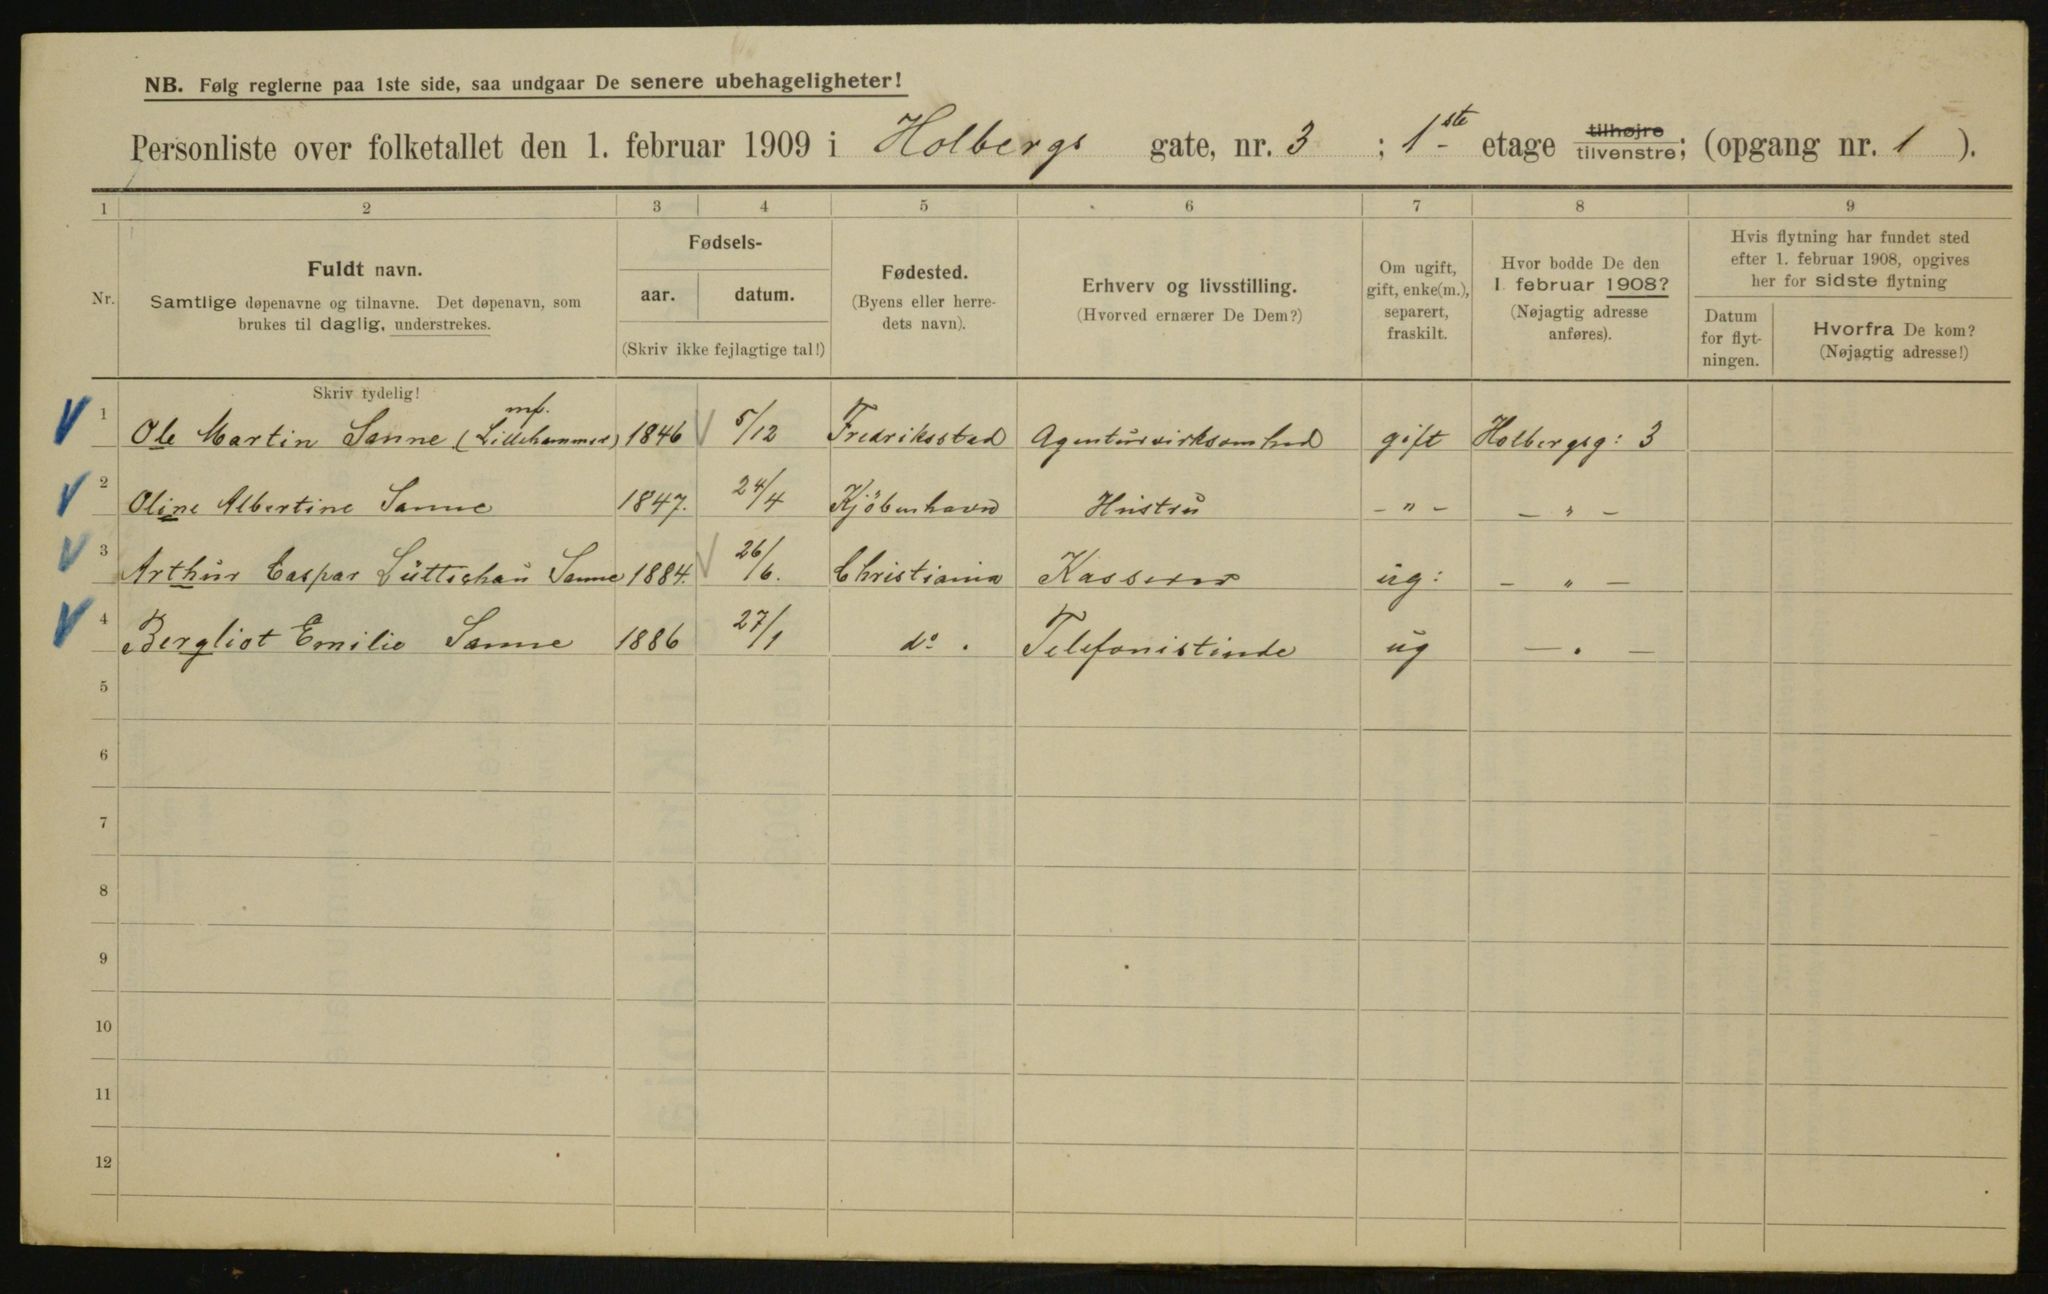 NB. Følg reglerne paa 1ste side, saa undgaar De senere ubehageligheter!
Personliste over folketallet den 1. februar 1909 i Holbergs gate, nr. 3 ; 1ste etage tilhøjre tilvenstre; (opgang nr. 1 ).
1 2 3 4 5 6 7 8 9
Nr.
Fuldt navn.
Samtlige døpenavne og tilnavne. Det døpenavn, som
brukes til daglig, understrekes.
Fødsels-
aar. datum.
(Skriv ikke fejlagtige tal!)
Fødested.
(Byens eller herre-
dets navn).
Erhverv og livsstilling.
(Hvorved ernærer De Dem?)
Om ugift,
gift, enke(m.),
separert,
fraskilt.
Hvor bodde De den
1 februar 1908?
(Nøjagtig adresse
anføres).
Hvis flytning har fundet sted
efter 1. februar 1908, opgives
her for sidste flytning
Datum
for flyt-
ningen.
Hvorfra De kom?
(Nøjagtig adresse!)
Skriv tydelig!
mf.
1 Ole Martin Sanne (Lillehammer) 1846 5/12 Fredriksstad Agenturvirksomhed gift Holbergsg: 3
2 Oline Albertine Sanne 1847. 24/4 Kjöbenhavn Hustru - " - - " -
3 Arthur Caspar Lüttichau Sanne 1884. 26/6. Christiania Kasserer ug: - " -
4 Bergliot Emilie Sanne 1886 27/1 do . Telefonistinde ug - " -
5
6
7
8
9
10
11
12